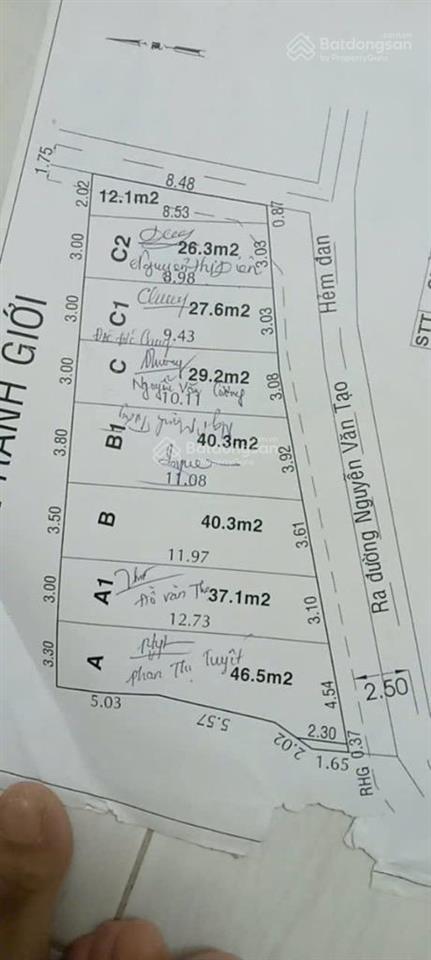 Batdongsan
by PropertyGuru
1.75
2.02
8.48
12.1m2
0.87
8.53
3.00
C2
26.3m2
3.03
8.98
3.00
C1
27.6m2
3.03
9.43
3.00
C
29.2m2
3.08
Nguyễn Văn Cường
10.11
3.80
B1
40.3m2
3.92
Batdongsan
11.08
3.50
B
40.3m2
3.61
11.97
3.00
A1
Đỗ Văn
37.1m2
3.10
12.73
3.30
A
Phan Thị Tuyết
46.5m2
4.54
5.03
5.57
2.02
2.30
1.65
0.37
RHG
2.50
Hẻm đan
Ra đường Nguyễn Văn Tạo
RANH GIỚI
STT